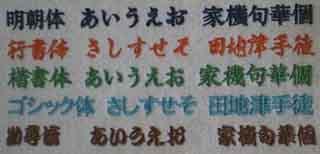 明朝体 あいうえお 家機句華個
行書体 さしすせそ 田地津手徒
楷書体 あいうえお 家機句華個
ゴシック体 さしすせそ 田地津手徒
勘亭流 あいうえお 家機句華個